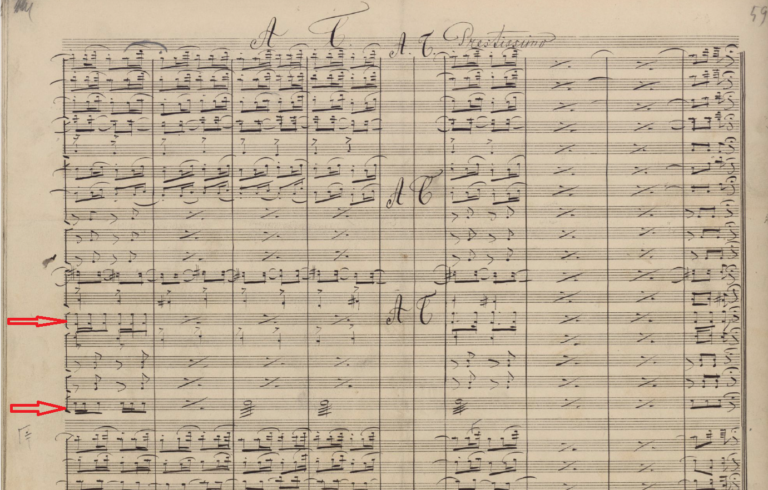 59
A T.
A. T. Prestissimo
A T
A T